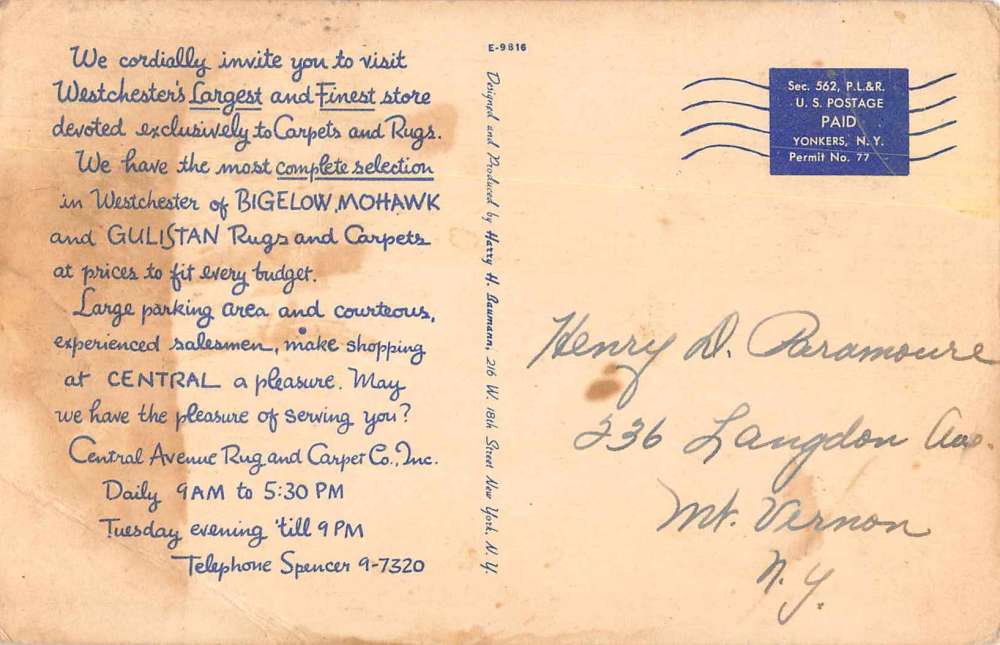 E-9816
We cordially invite you to visit
Westchester's Largest and Finest store
devoted exclusively to Carpets and Rugs.
We have the most complete selection
in Westchester of BIGELOW, MOHAWK
and GULISTAN Rugs and Carpets
at prices to fit every budget.
Large parking area and courteous,
experienced salesmen, make shopping
at CENTRAL a pleasure. May
we have the pleasure of serving you?
Central Avenue Rug and Carpet Co., Inc.
Daily 9AM to 5:30 PM
Tuesday evening 'till 9 PM
Telephone Spencer 9-7320
Designed and Produced by Harry H. Baumann, 216 W. 18th Street New York, N. Y.
Sec. 562, P.L.&R.
U. S. POSTAGE
PAID
YONKERS, N. Y.
Permit No. 77
Henry D. Paramoure
236 Langdon Ave.
Mt. Vernon
N. Y.